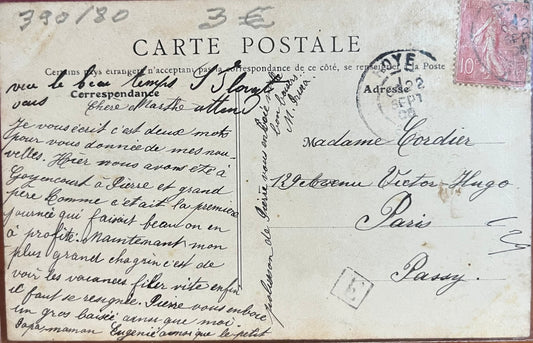 390/80
3 €
CARTE POSTALE
Certains pays étrangers n'acceptant pas la correspondance de ce côté, se renseigner à la Poste
vu le beau temps
Correspondance
Adresse
vous attend
Chère Marthe
Je vous écrit c'est deux mots
pour vous donnée de mes nou-
velles. Hier nous avons été à
Goyencourt à Pierre et grand
père Comme c'était la première
journée qui faisait beau on en
à profité. Maintenant mon
plus grand chagrin c'est de
voir les vacances filer vite enfin
il faut se resignée. Pierre vous enboie
un gros baisée ainsi que moi.
Papa, maman Eugenie ainsi que le petit
polisson de Pierre vous enboie
bon baisers
M.
Madame Cordier
129 Avenue Victor Hugo
Paris
Passy.
ROYE
22
SEPT
10
E